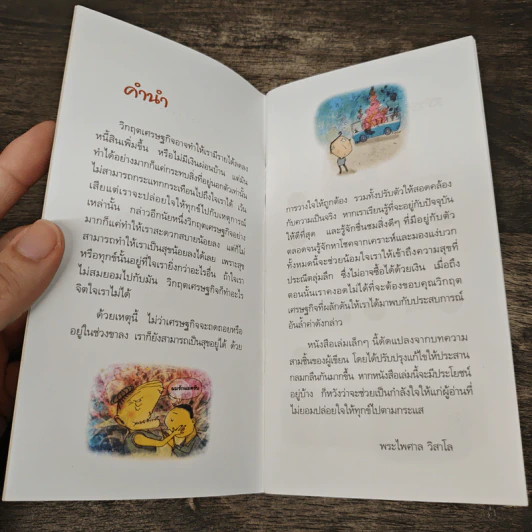 คำนำ
วิกฤตเศรษฐกิจอาจทำให้เรามีรายได้ลดลง
หนี้สินเพิ่มขึ้น หรือไม่มีเงินผ่อนบ้าน แต่มัน
ทำได้อย่างมากก็แค่กระทบสิ่งที่อยู่นอกตัวเท่านั้น
ไม่สามารถกระแทกกระเทือนไปถึงใจเราได้ เว้น
เสียแต่เราจะปล่อยใจให้ทุกข์ไปกับเหตุการณ์
เหล่านั้น กล่าวอีกนัยหนึ่งวิกฤตเศรษฐกิจอย่าง
มากก็แค่ทำให้เราสะดวกสบายน้อยลง แต่ก็ไม่
สามารถทำให้เราเป็นสุขน้อยลงได้เลย เพราะสุข
หรือทุกข์นั้นอยู่ที่ใจเรายิ่งกว่าอะไรอื่น ถ้าใจเรา
ไม่สมยอมไปกับมัน วิกฤตเศรษฐกิจก็ทำอะไร
จิตใจเราไม่ได้
ด้วยเหตุนี้ ไม่ว่าเศรษฐกิจจะถดถอยหรือ
อยู่ในช่วงขาลง เราก็ยังสามารถเป็นสุขอยู่ได้ ด้วย
การวางใจให้ถูกต้อง รวมทั้งปรับตัวให้สอดคล้อง
กับความเป็นจริง หากเราเรียนรู้ที่จะอยู่กับปัจจุบัน
ให้ดีที่สุด และรู้จักชื่นชมสิ่งดีๆ ที่มีอยู่กับตัว
ตลอดจนรู้จักหาโชคจากเคราะห์และมองแง่บวก
ทั้งหมดนี้จะช่วยน้อมใจเราให้เข้าถึงความสุขที่
ประณีตลุ่มลึก ซึ่งไม่อาจซื้อได้ด้วยเงิน เมื่อถึง
ตอนนั้นเราคงอดไม่ได้ที่จะต้องขอบคุณวิกฤต
เศรษฐกิจที่ผลักดันให้เราได้มาพบกับประสบการณ์
อันล้ำค่าดังกล่าว
หนังสือเล่มเล็กๆ นี้ดัดแปลงจากบทความ
สามชิ้นของผู้เขียน โดยได้ปรับปรุงแก้ไขให้ประสาน
กลมกลืนกันมากขึ้น หากหนังสือเล่มนี้จะมีประโยชน์
อยู่บ้าง ก็หวังว่าจะช่วยเป็นกำลังใจให้แก่ผู้อ่านที่
ไม่ยอมปล่อยใจให้ทุกข์ไปตามกระแส
พระไพศาล วิสาโล